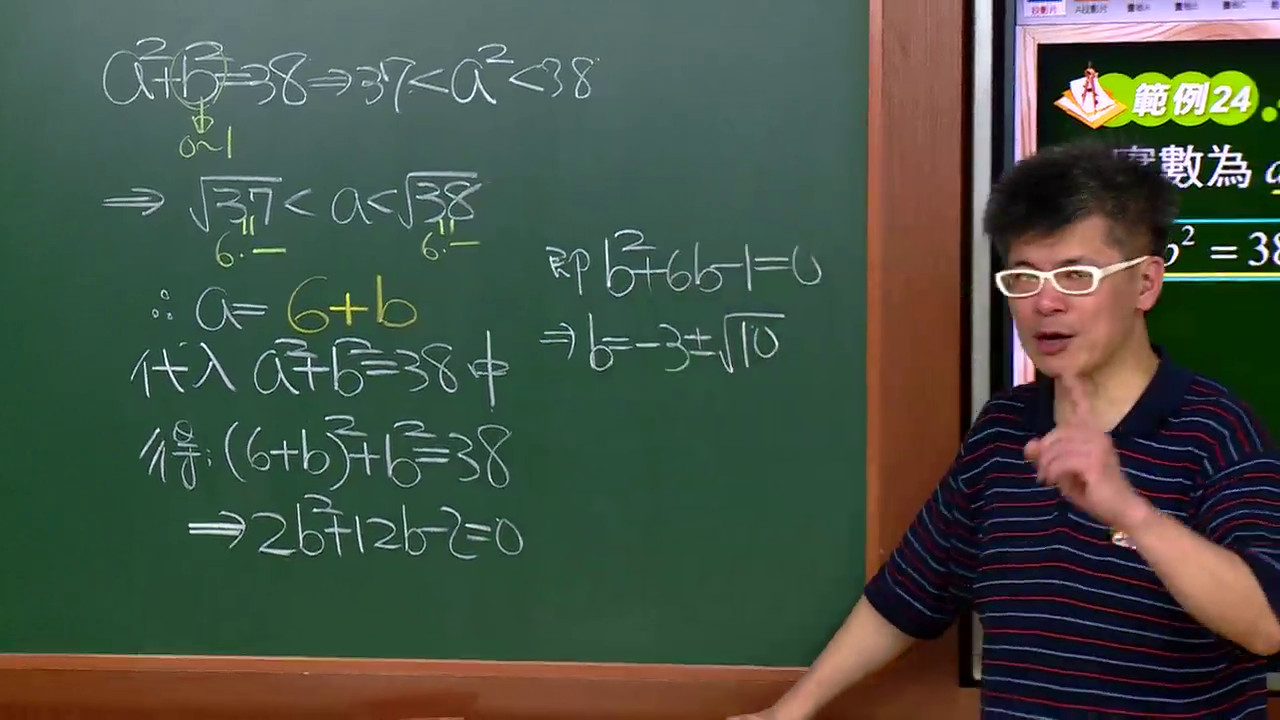 a²+b²=38⇒37<a²<38
0~1
⇒ √37 < a < √38
6.— 6.—
∴ a= 6+b
代入 a²+b²=38中
得:(6+b)²+b²=38
⇒2b²+12b-2=0
即 b²+6b-1=0
⇒b=-3±√10
範例24
實數為 a
b² = 38